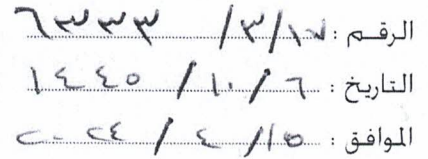 الرقم : ١٧/٣/ ٦٣٣٣
التاريخ : ٦ /١٠/ ١٤٤٥
الموافق : ١٥/ ٤ / ٢٠٢٤